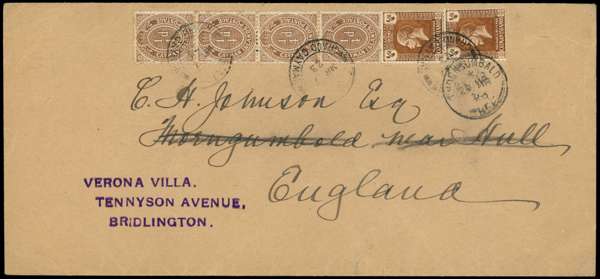 C. H. Johnson Esq
Morngumbold near Hull
England
VERONA VILLA.
TENNYSON AVENUE,
BRIDLINGTON.